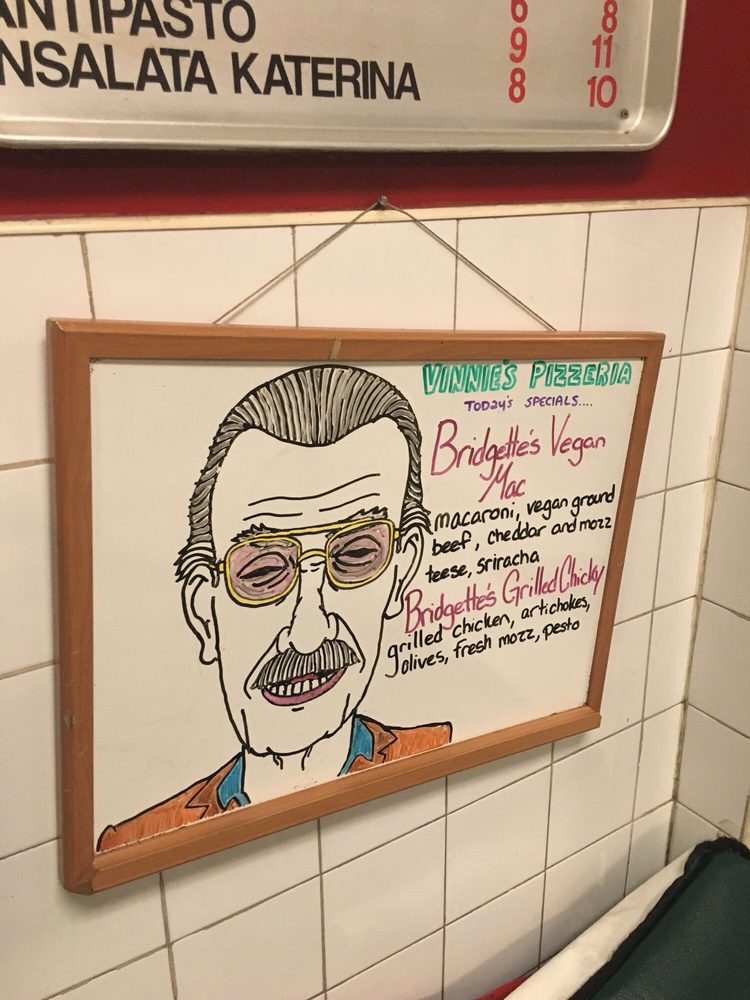 ANTIPASTO 6 8
9 11
NSALATA KATERINA 8 10
VINNIE'S PIZZERIA
TODAY'S SPECIALS....
Bridgette's Vegan
Mac
macaroni, vegan ground
beef, cheddar and mozz
teese, sriracha
Bridgette's Grilled Chicky
grilled chicken, artichokes,
olives, fresh mozz, pesto